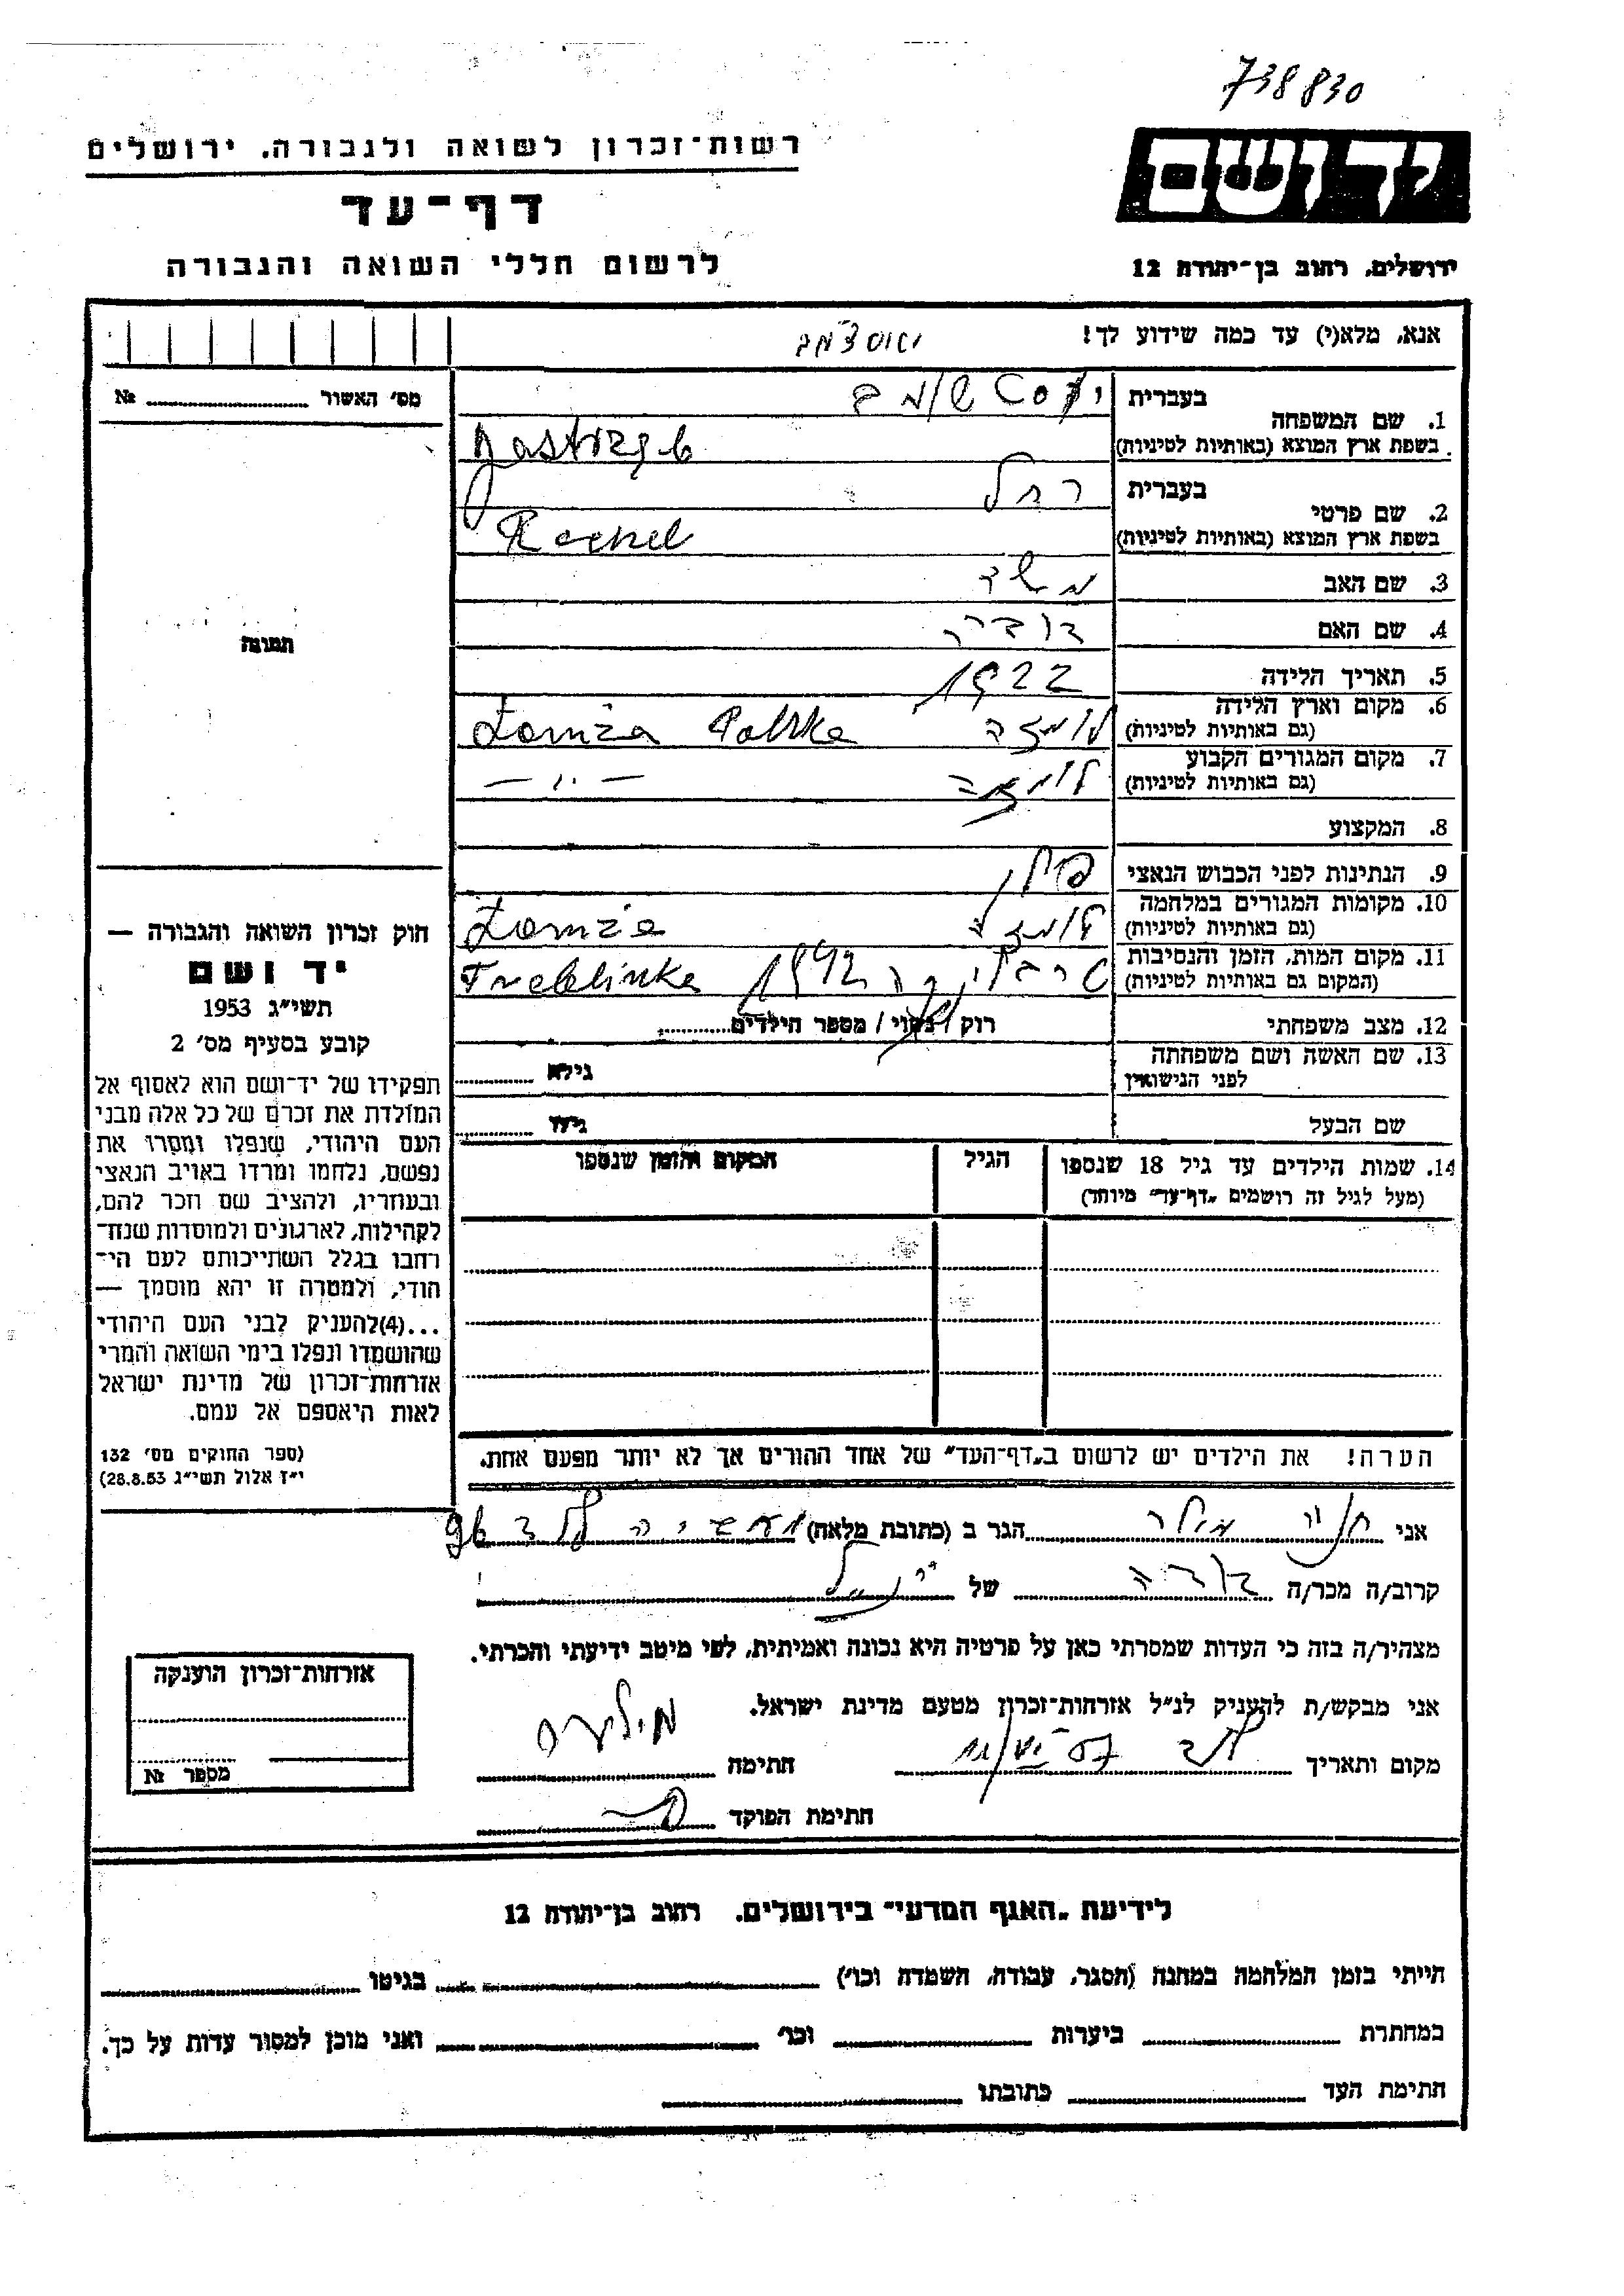 738830
רשות־זכרון לשואה ולגבורה, ירושלים
יד ושם
דף־עד
לרשום חללי השואה והגבורה
ירושלים, רחוב בן־יהודה 12
אנא, מלא(י) עד כמה שידוע לך!
מס׳ האשור № 
1. שם המשפחה
בעברית
בשפת ארץ המוצא (באותיות לטיניות) Jastrząb
2. שם פרטי
בעברית רחל
בשפת ארץ המוצא (באותיות לטיניות) Rachel
3. שם האב משה
4. שם האם
5. תאריך הלידה 1922
6. מקום וארץ הלידה
(גם באותיות לטיניות) לומזה Łomża Polska
7. מקום המגורים הקבוע
(גם באותיות לטיניות) לומזה — ״ —
8. המקצוע
9. הנתינות לפני הכבוש הנאצי פולין
10. מקומות המגורים במלחמה
(גם באותיות לטיניות) לומזה Łomża
11. מקום המות, הזמן והנסיבות
(המקום גם באותיות לטיניות) טרבלינקה 1942 Treblinka
12. מצב משפחתי רוק / נשוי / מספר הילדים
13. שם האשה ושם משפחתה
לפני הנישואין גילה
שם הבעל גילו
14. שמות הילדים עד גיל 18 שנספו
(מעל לגיל זה רושמים „דף־עד״ מיוחד)
הגיל
המקום והזמן שנספו
תמונה
חוק זכרון השואה והגבורה —
יד ושם
תשי״ג 1953
קובע בסעיף מס׳ 2
תפקידו של יד־ושם הוא לאסוף אל
המולדת את זכרם של כל אלה מבני
העם היהודי, שנפלו ומסרו את
נפשם, נלחמו ומרדו באויב הנאצי
ובעוזריו, ולהציב שם וזכר להם,
לקהילות, לארגונים ולמוסדות שנח־
רחבו בגלל השתייכותם לעם הי־
הודי, ולמטרה זו יהא מוסמך —
...(4)להעניק לבני העם היהודי
שהושמדו ונפלו בימי השואה והמרי
אזרחות־זכרון של מדינת ישראל
לאות היאספם אל עמם.
(ספר החוקים מס׳ 132
י״ז אלול תשי״ג 28.8.53)
הערה! את הילדים יש לרשום ב„דף־העד״ של אחד ההורים אך לא יותר מפעם אחת.
אני חנה מילר הגר ב (כתובת מלאה)
קרוב/ה מכר/ה דודה של
מצהיר/ה בזה כי העדות שמסרתי כאן על פרטיה היא נכונה ואמיתית, לפי מיטב ידיעתי והכרתי.
אני מבקש/ת להעניק לנ״ל אזרחות־זכרון מטעם מדינת ישראל.
מקום ותאריך
חתימה
חתימת הפוקד
אזרחות־זכרון הוענקה
מספר №
לידיעת „האגף המדעי״ בירושלים, רחוב בן־יהודה 12
הייתי בזמן המלחמה במחנה (הסגר, עבודה, השמדה וכו׳) בגיטו
במחתרת ביערות וכו׳ ואני מוכן למסור עדות על כך.
חתימת העד כתובתו